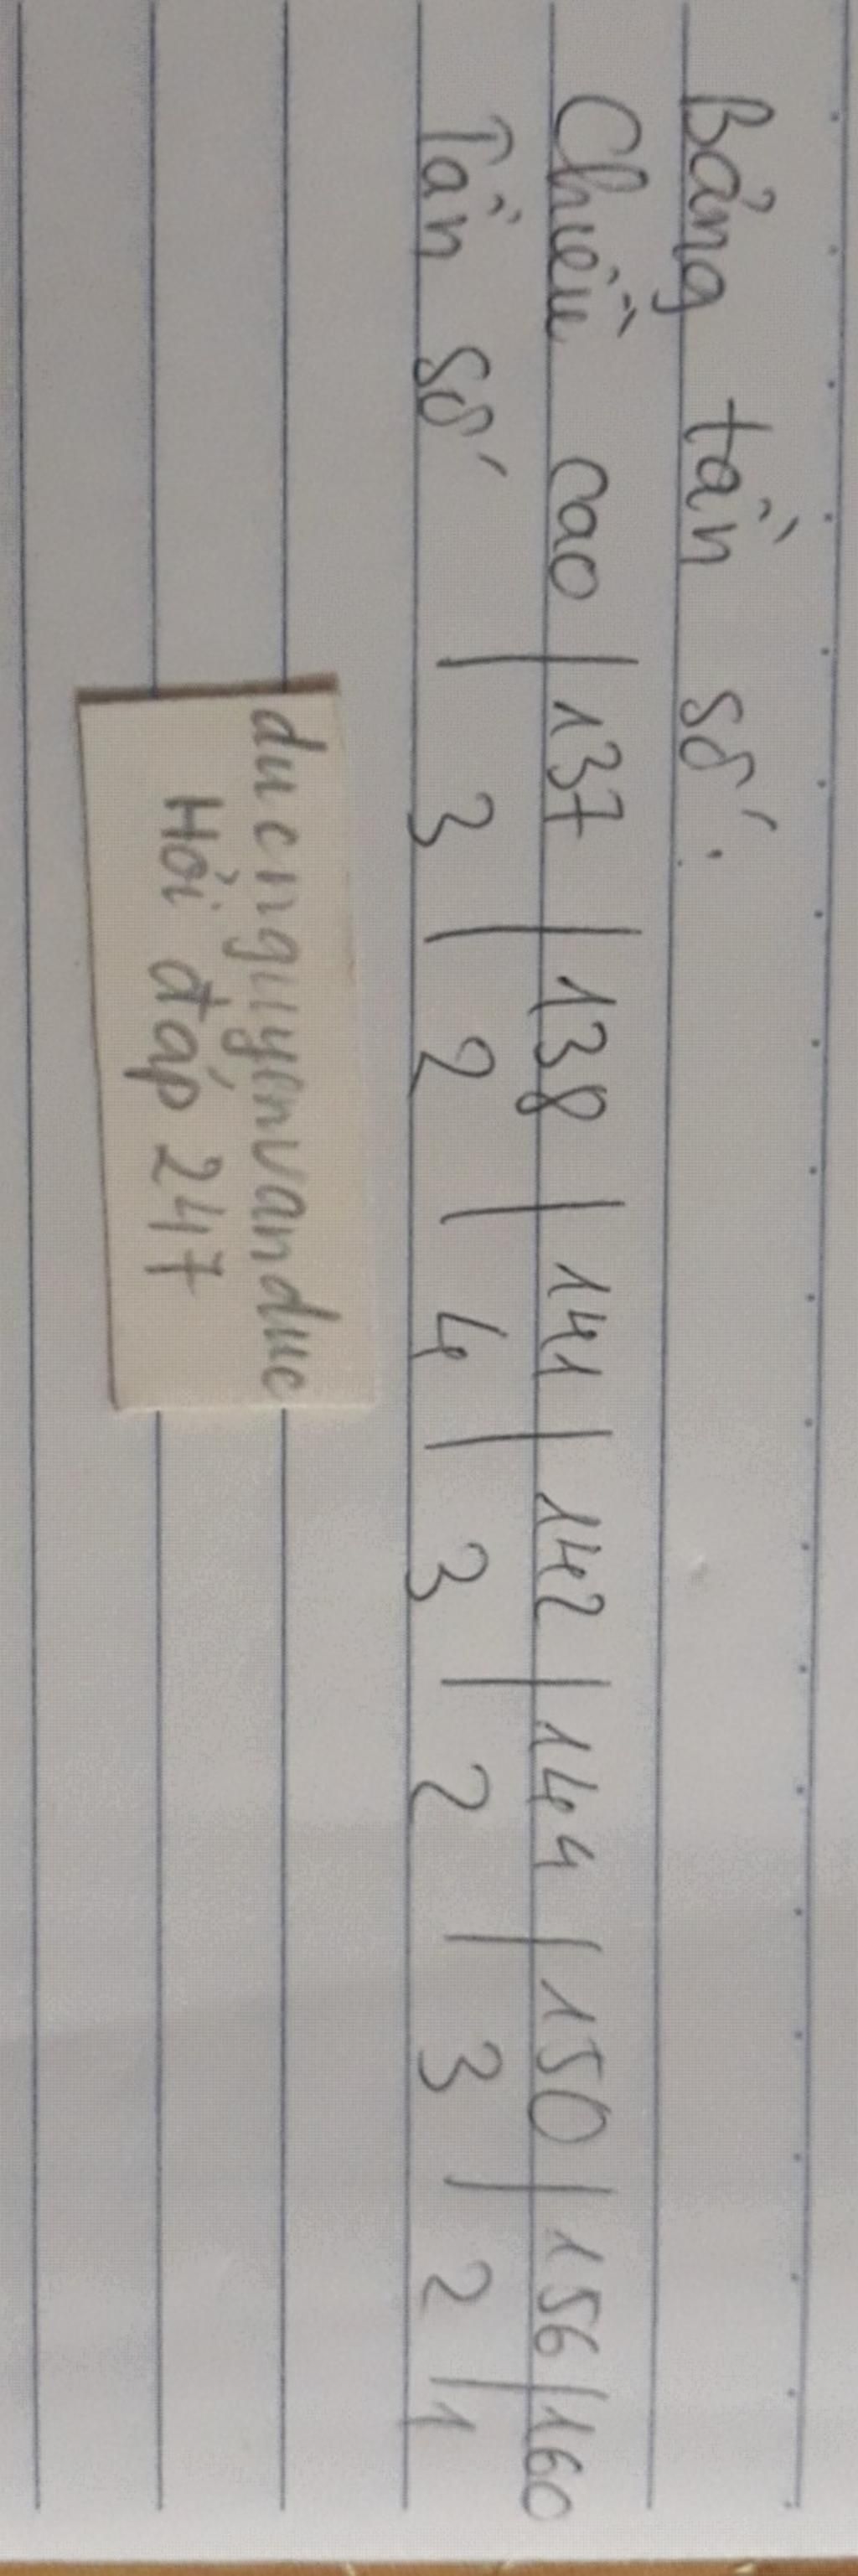 Bảng tần số:
Chiều cao | 137 | 138 | 141 | 142 | 144 | 150 | 156 | 160
Tần số | 3 | 2 | 4 | 3 | 2 | 3 | 2 | 1
ducnguyenvanduc
Hỏi đáp 247